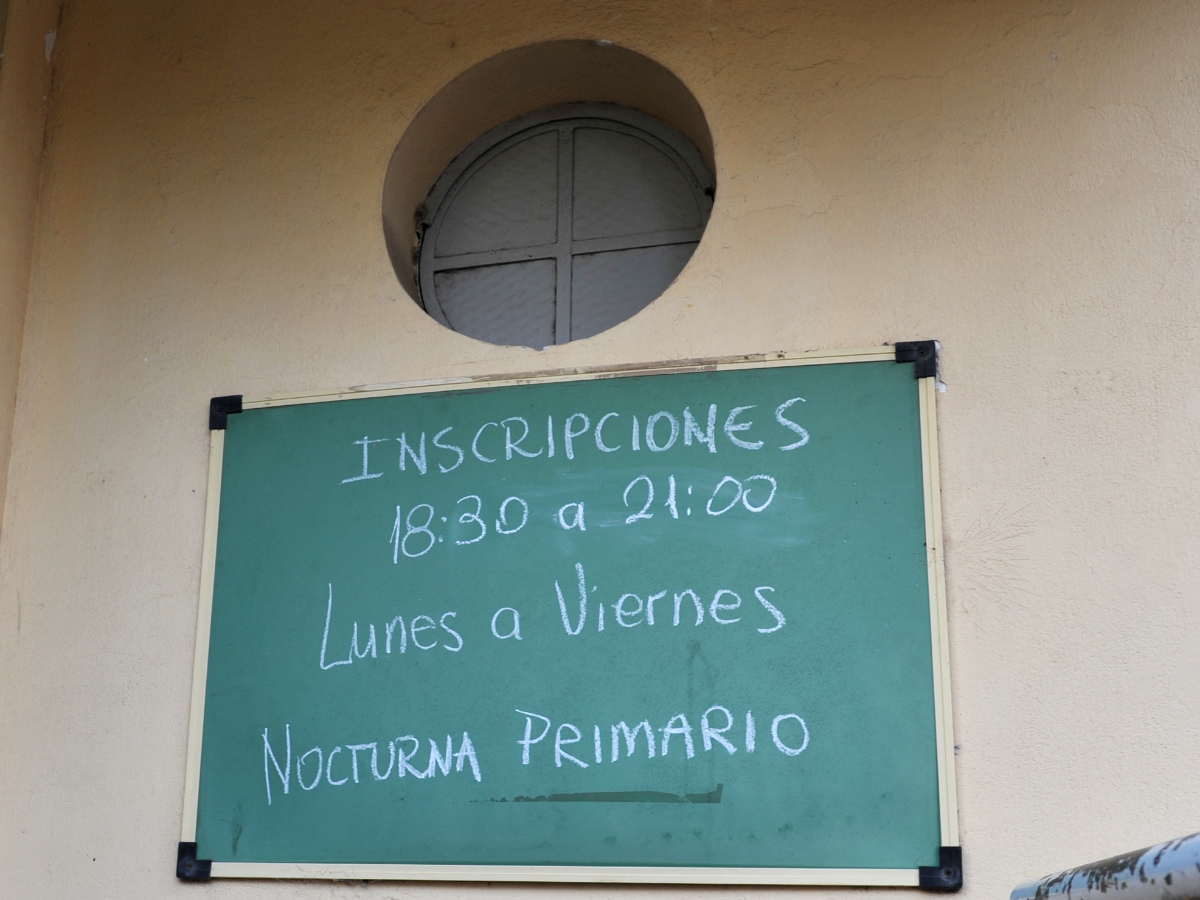 INSCRIPCIONES
18:30 a 21:00
Lunes a Viernes
NOCTURNA PRIMARIO